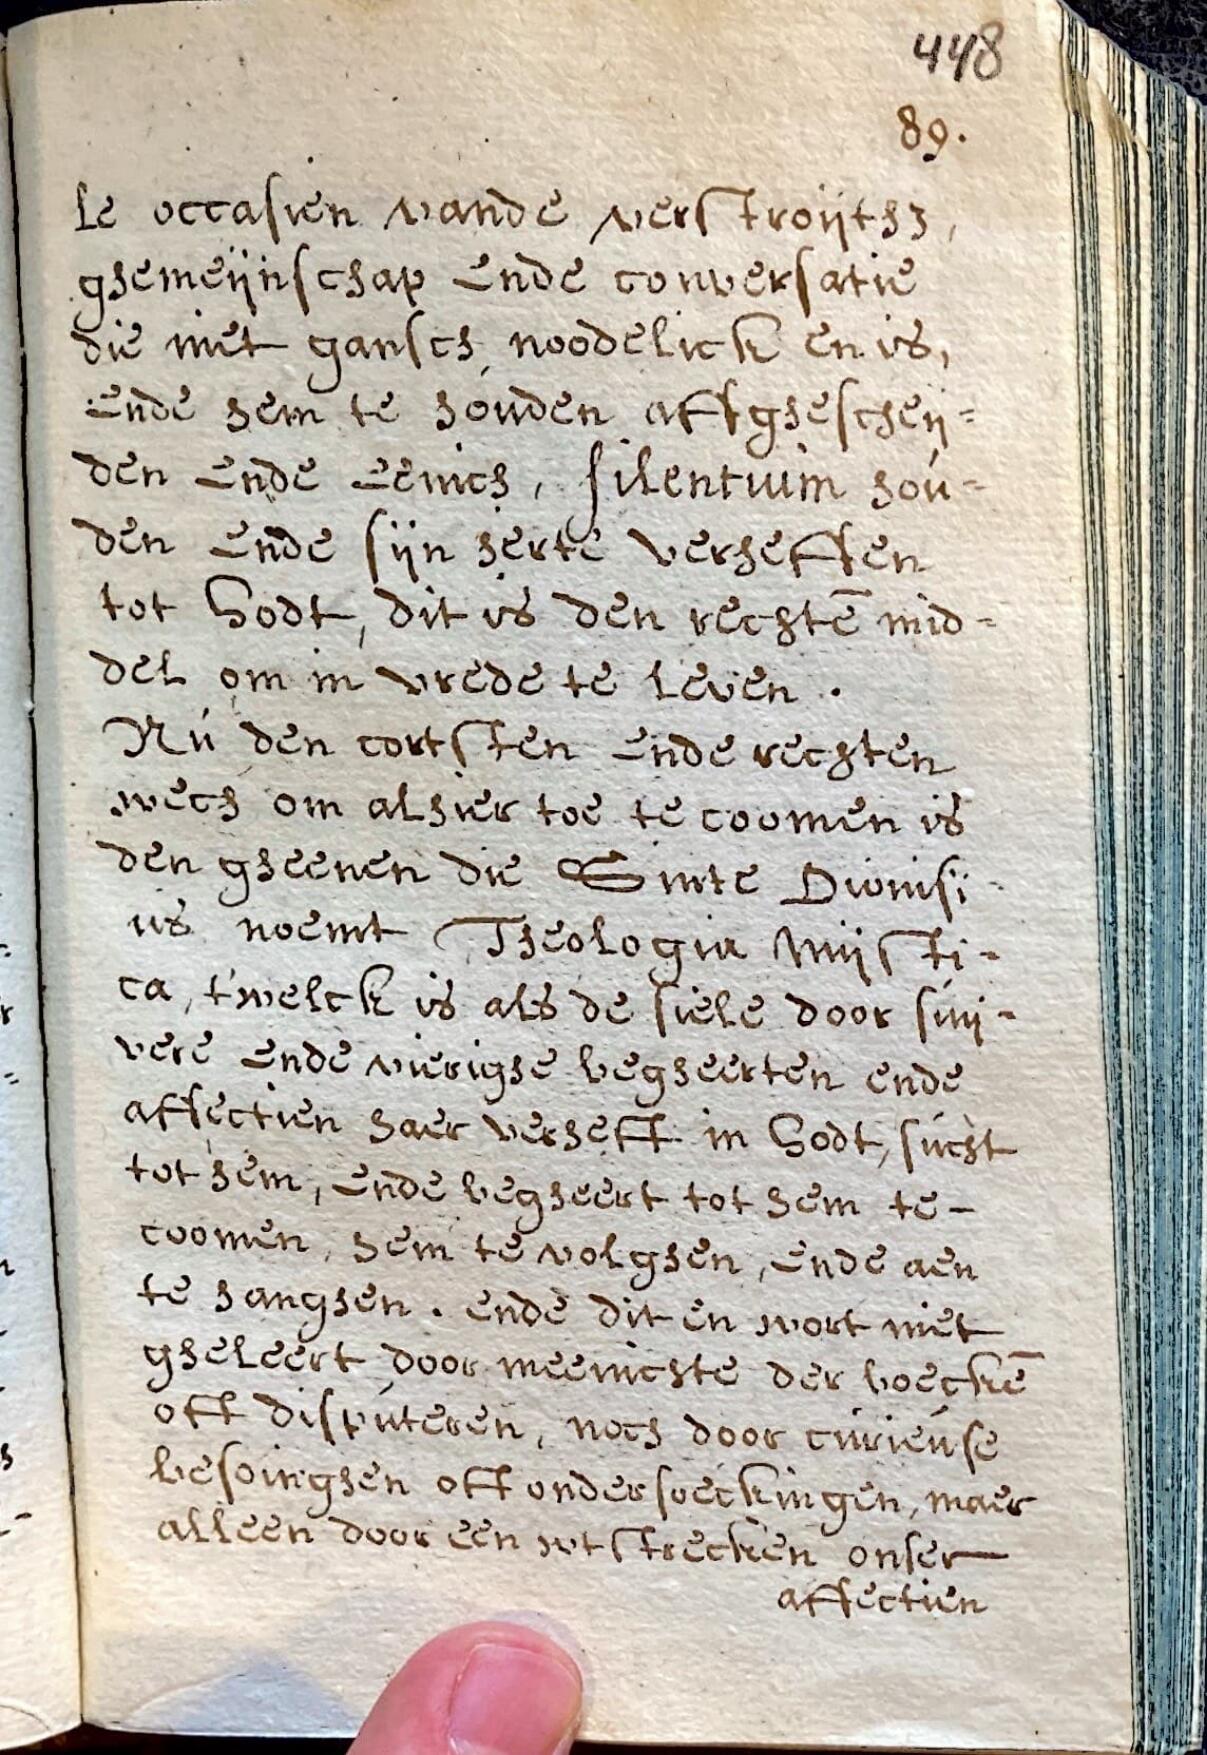 448
89.
le occasien vande verstroijth3,
ghemeijnschap ende conversatie
die niet gansch noodelick en is,
ende hem te houden aftgheschey=
den ende eenich, silentium hou=
den ende sijn herte verheffen
tot Godt, dit is den rechtē mid=
del om in vrede te leven.
Nu den cortsten ende rechten
wech om alhier toe te coomen is
den gheenen die Sinte Dionisi-
us noemt Theologia Mijsti-
ca, t'welck is als de siele door suij-
vere ende vierighe begheerten ende
affectien haer verheft in Godt, sucht
tot hem, ende begheert tot hem te-
coomen, hem te volghen, ende aen
te hanghen. ende dit en wort niet
gheleert door meenichte der boeckē
oft disputeren, noch door curieuse
besoinghen oft ondersoeckingen, maer
alleen door een wtstrecken onser
affectien